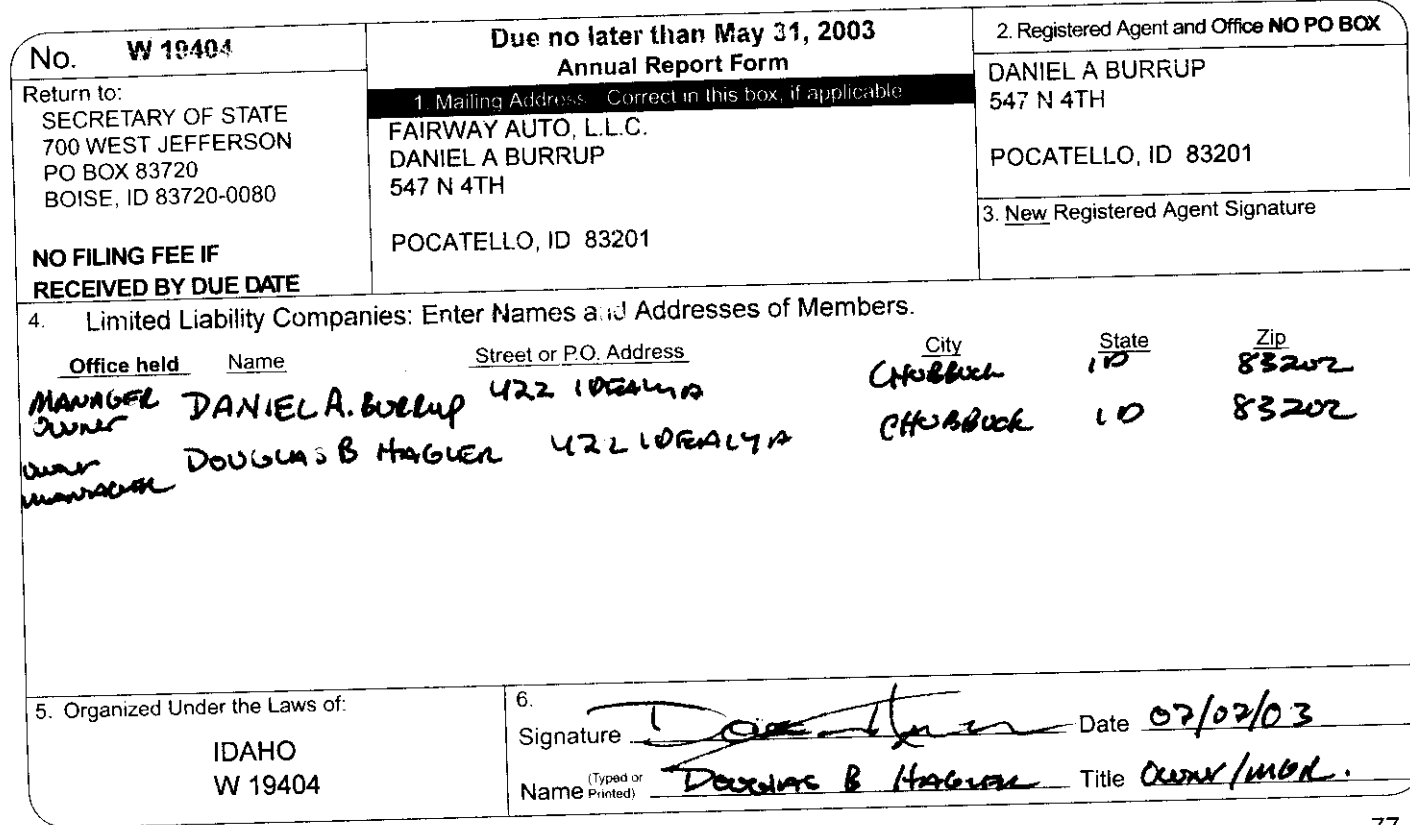 No. W 19404
Return to:
SECRETARY OF STATE
700 WEST JEFFERSON
PO BOX 83720
BOISE, ID 83720-0080
NO FILING FEE IF
RECEIVED BY DUE DATE
Due no later than May 31, 2003
Annual Report Form
1. Mailing Address: Correct in this box, if applicable
FAIRWAY AUTO, L.L.C.
DANIEL A BURRUP
547 N 4TH
POCATELLO, ID 83201
2. Registered Agent and Office NO PO BOX
DANIEL A BURRUP
547 N 4TH
POCATELLO, ID 83201
3. New Registered Agent Signature
4. Limited Liability Companies: Enter Names and Addresses of Members.
Office held Name Street or P.O. Address City State Zip
MANAGER OWNER DANIEL A. BURRUP 422 IDEALYA CHUBBUCK ID 83202
OWNER MANAGER DOUGLAS B HAGLER 422 IDEALYA CHUBBUCK ID 83202
5. Organized Under the Laws of:
IDAHO
W 19404
6.
Signature Date
Name (Typed or Printed) DOUGLAS B HAGLER Title OWNER/MGR.
77